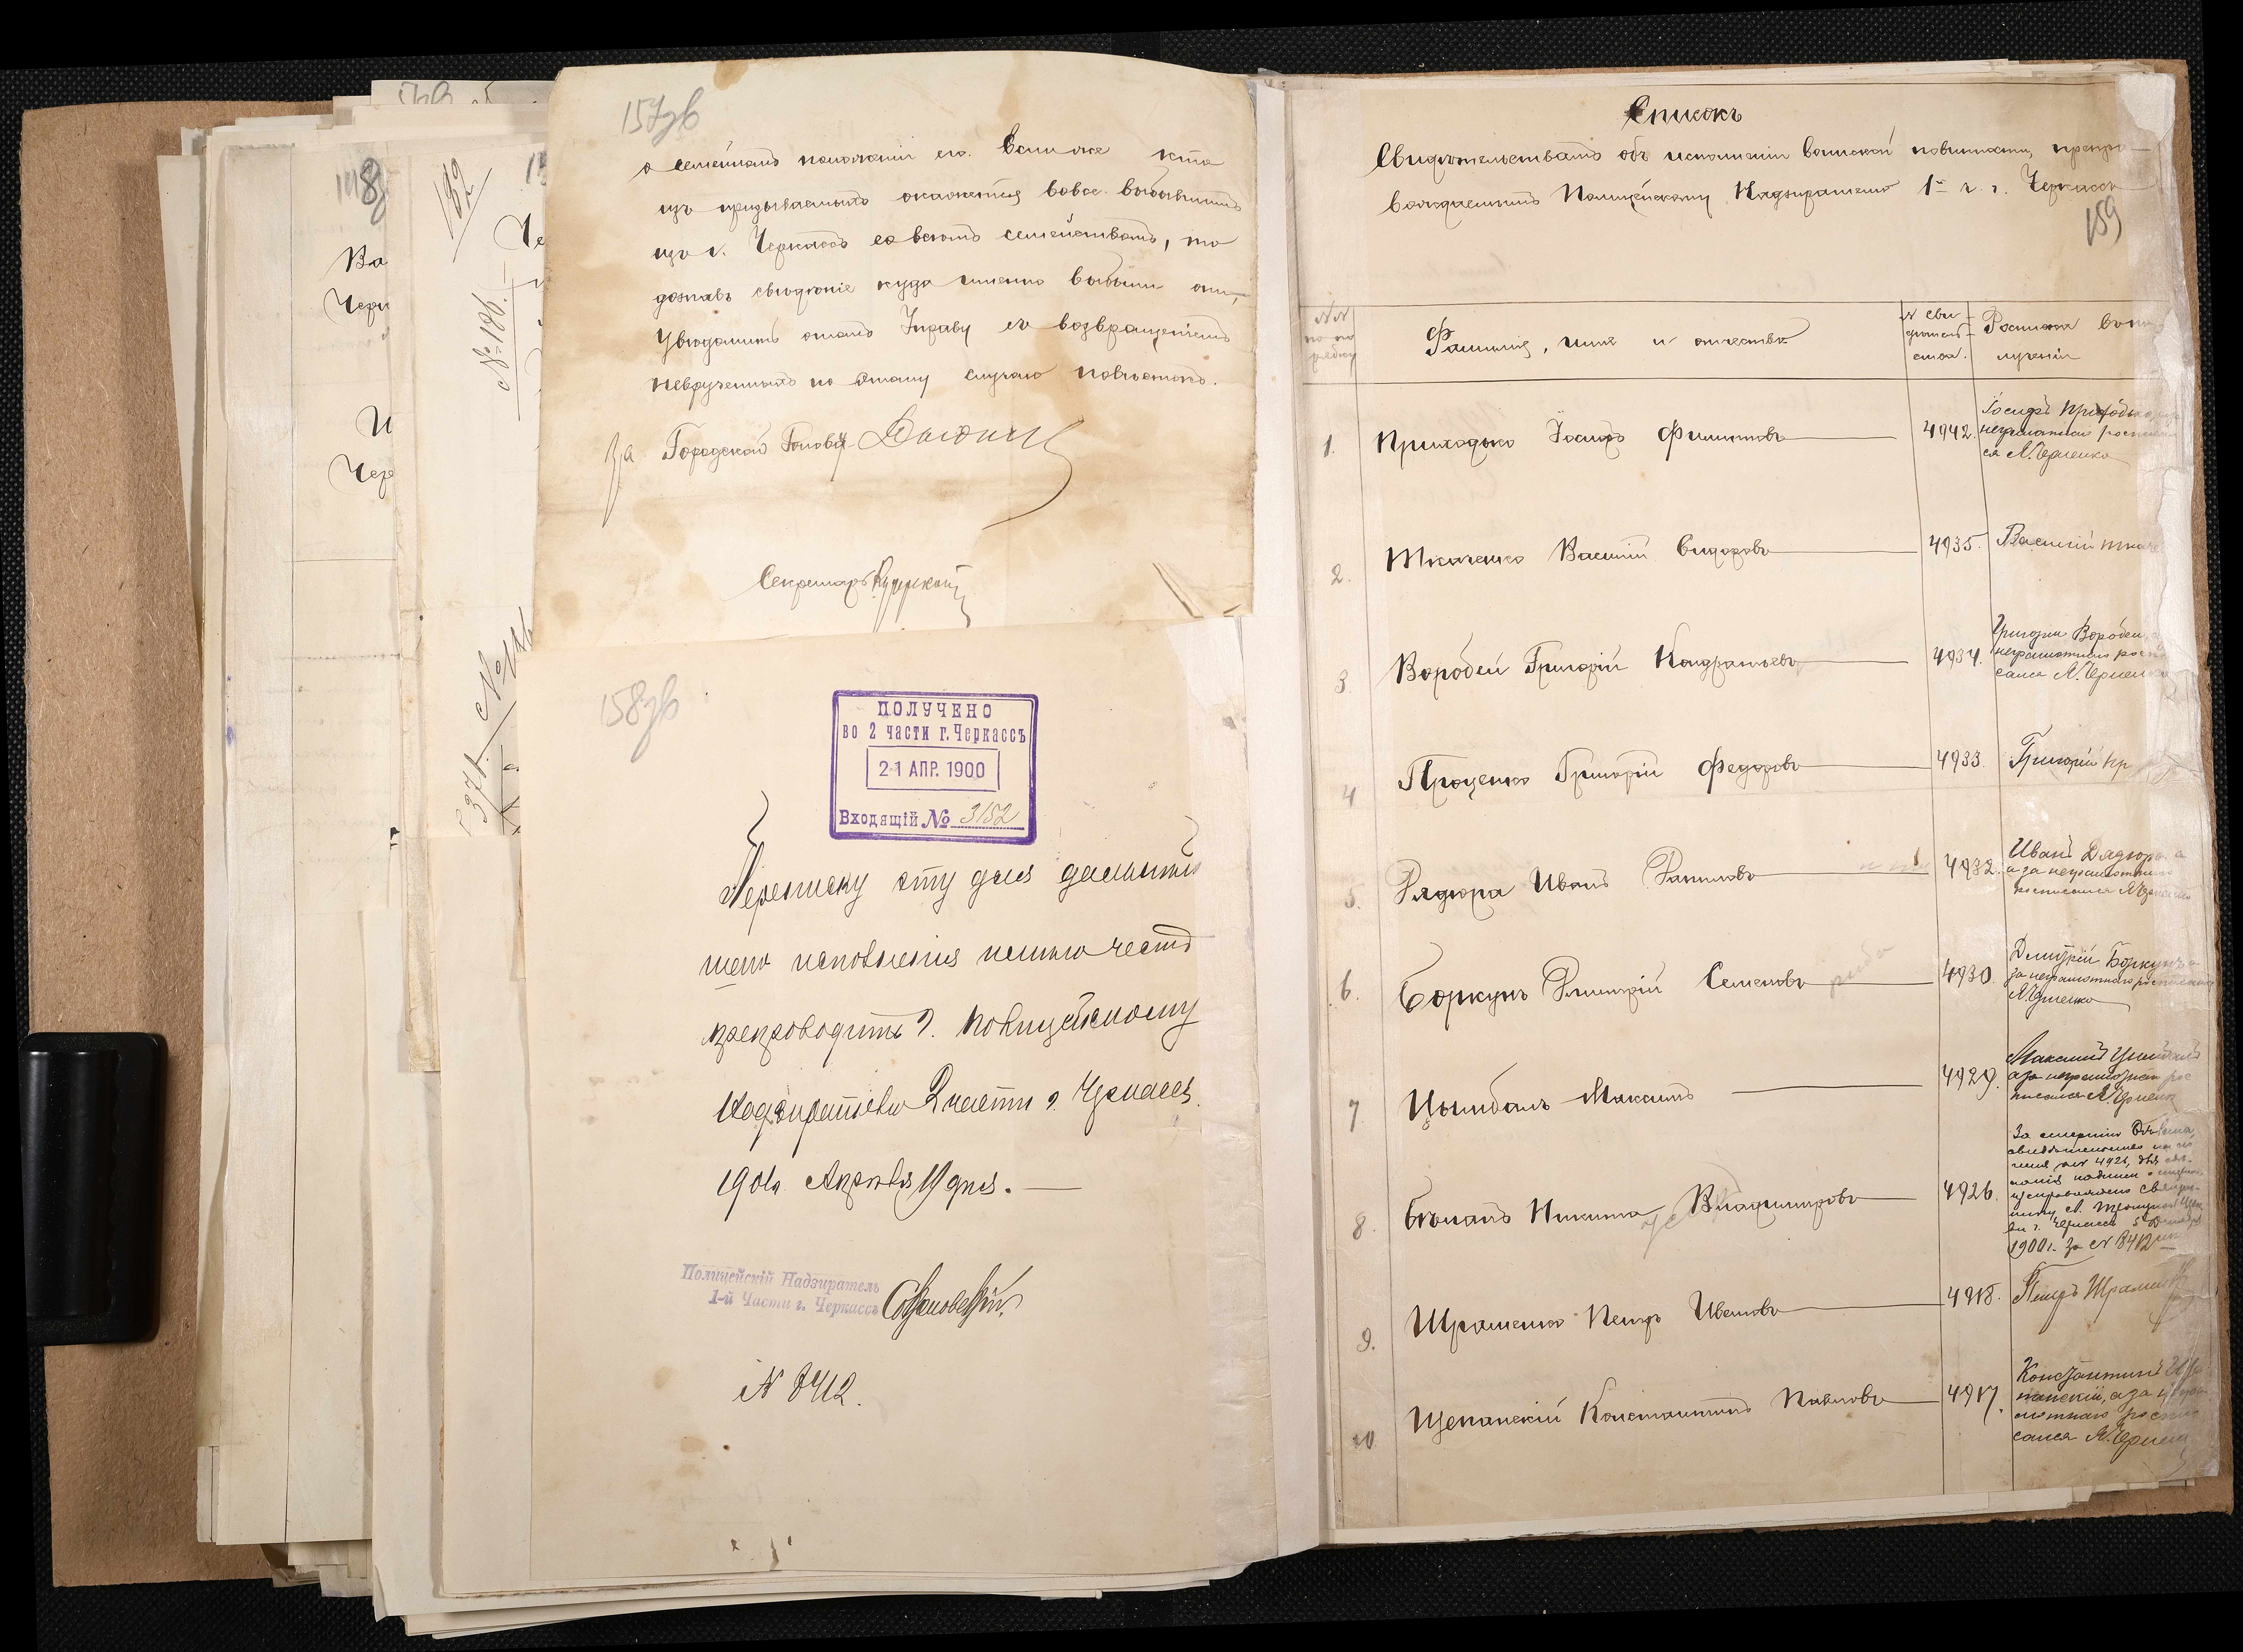 157зв
о семейномъ положеніи его. Если же кто
изъ призываемыхъ окажется вовсе выбывшимъ
изъ г. Черкассъ со всѣмъ семействомъ, то
дознавъ свѣдѣніе куда именно выбыли они,
увѣдомить о томъ Управу съ возвращеніемъ
неврученныхъ по этому случаю повѣстокъ.
За Городской Головы
Секретарь
158зв
ПОЛУЧЕНО
во 2 части г. Черкассъ
21 АПР. 1900
Входящій № 3152
Переписку эту для дальнѣй
шего исполненія имѣю честь
препроводить г. Полицейскому
Надзирателю 2 части г. Черкассъ.
1900 Апрѣля 19 дня.
Полицейскій Надзиратель
1-й Части г. Черкассъ
N 8412.
148
Ва
Черк
И
Чер
132
Че
№ 186.
Списокъ
Свидѣтельствамъ объ исполненіи воинской повинности, препро-
вождаемымъ Полицейскому Надзирателю 1й ч. г. Черкассъ
159
NN по по рядку
Фамилія, имя и отчество
N сви-
дѣтель-
ства.
Росписка въ по
лученіи
1. Приходько Іосифъ Филипповъ 4942.
Іосифъ Приходько
неграмотнаго росписал
ся Я. Черненко
2. Ткаченко Василій Сидоровъ 4935. Василій Ткаче
3. Воробей Григорій Кондратьевъ 4934.
Григорій Воробей, а
неграмотнаго роспи
сался Я. Черненко
4 Проценко Григорій Федоровъ 4933. Григорій Пр
5. Дядюра Иванъ Даниловъ 4932.
Иванъ Дядюра а
а за неграмотнаго
росписался Я. Черненко
6. Боркунъ Дмитрій Семеновъ 4930.
Дмитрій Боркунъ а
за неграмотнаго росписался
Я. Черненко
7 Цымбалъ Максимъ 4929.
Максимъ Цымбалъ
а за неграмотнаго рос
писался Я. Черненк
8. Бѣланъ Никита Владимировъ 4926.
За смертію Бѣлана
свидѣтельство
N 4926, для
г. Черкассъ 5
1900 г. за N 8412
9. Шраменко Петръ Ивановъ 4918. Петръ Шраменк
10 Щепанскій Константинъ Павловъ 4917.
Константинъ Ще
панскій, а за негра
мотнаго роспи
сался Я. Черненк